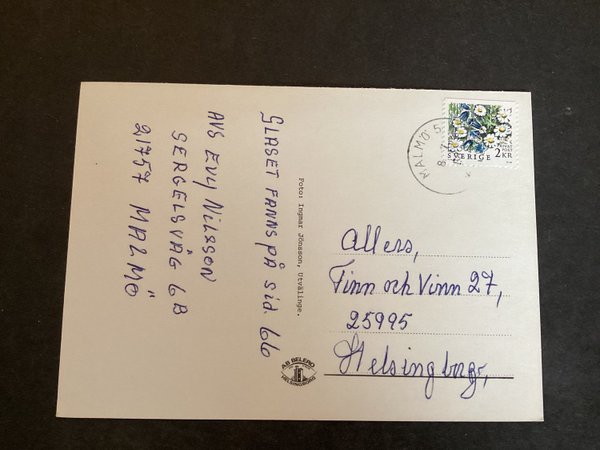 GLASET FANNS PÅ Sid. 66
AVS EVY NILSSON
SERGELSVÄG 6B
21757 MALMÖ
Foto: Ingmar Jönsson, Utvälinge.
MALMÖ 5
SVERIGE 2 KR
Allers,
Finn och Vinn 27,
25995
Helsingborg,
A.B. BELERO
HELSINGBORG